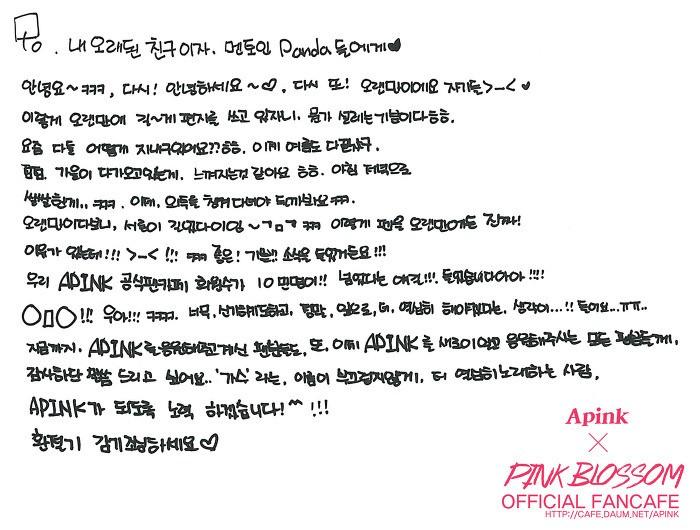 To. 내 오래된 친구이자. 멘토인 Panda들에게♥
안녕요~ㅋㅋㅋ, 다시! 안녕하세요~♡. 다시 또! 오랜만이에요 자기들>_<♥
이렇게 오랜만에 길~게 편지를 쓰고 있자니. 뭔가 설레는기분이다ㅎㅎ.
요즘 다들 어떻게 지내구있어요??ㅎㅎ. 이제 여름도 다갔구.
가을이 다가오고있는게. 느껴지는것 같아요 ㅎㅎ. 아침 저녁으로
쌀쌀한게.. ㅋㅋ. 이제. 외투를 챙겨 다녀야 되나봐요ㅋㅋ.
오랜만이다보니, 서론이 길었다이잉~ㄱㅁㄱ ㅋㅋ 이렇게 펜을 오랜만에든 진짜!
이유가 있는데!!! >_< !!! ㅋㅋ 좋은! 기쁜!! 소식을 들었거든요!!!
우리 APINK 공식팬카페 회원수가 10만명이!! 넘었다는 얘길!!!. 들었습니다아아!!!!
OㅁO!!! 우아!!! ㅋㅋㅋ. 너무, 신기하기도하고, 정말, 앞으로, 더, 열심히 해야겠다는, 생각이...!! 들어요...ㅠㅠ..
지금까지. APINK를응원해주고계신 팬분들도, 또. 이제 APINK를 새로이알고 응원해주시는 모든 팬분들께,
감사하단 말씀 드리고 싶어요.. '가수' 라는, 이름이 부끄럽지않게, 더 열심히노래하는 사람,
APINK가 되도록 노력 하겠습니다!^^ !!!
환절기 감기조심하세요♡
Apink
×
PINK BLOSSOM
OFFICIAL FANCAFE
HTTP://CAFE.DAUM.NET/APINK